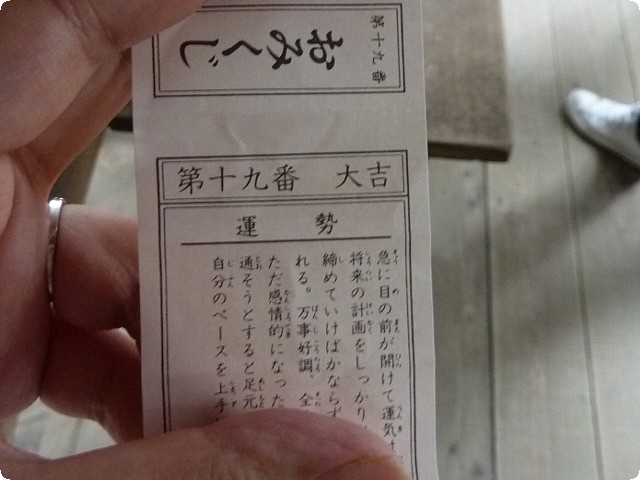 第十九番
おみくじ
第十九番 大吉
運勢
急に目の前が開けて運気
将来の計画をしっかり
締めていけばかならず
れる。万事好調。全
ただ感情的になった
通そうとすると足元
自分のペースを上手